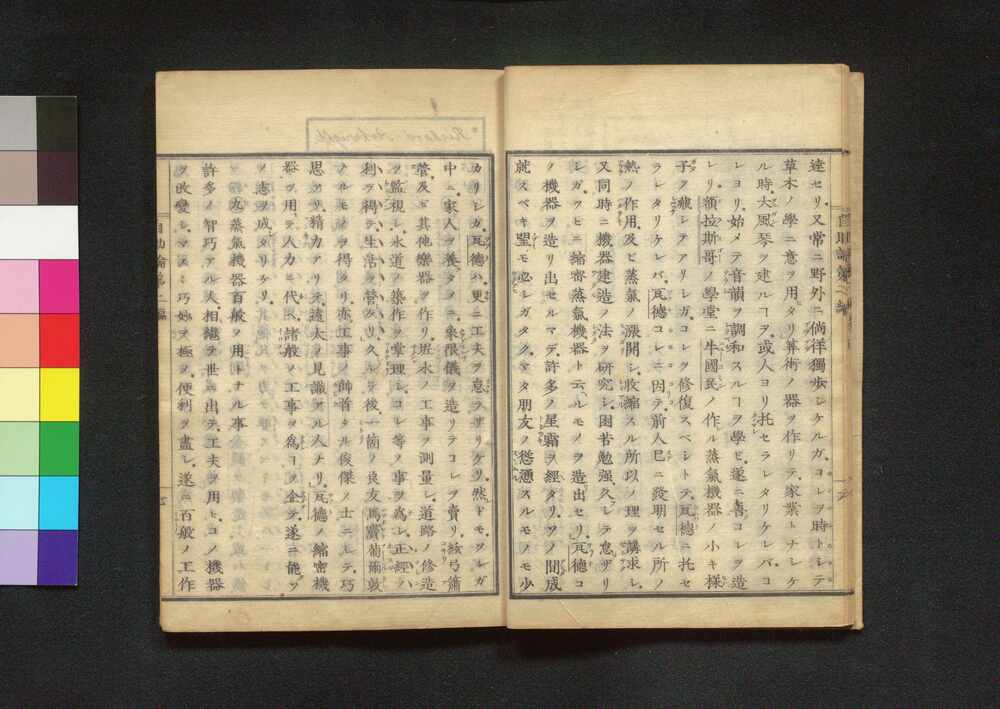 達セリ又常ニ野外ニ倘徉獨歩シケルガコレヲ時トシテ
草木ノ學ニ意ヲ用タリ算術ノ器ヲ作リテ家業トナレケ
ル時大風琴ヲ建ルヿヲ或人ヨリ托セラレタリケレバコ
レヨリ始メテ音韻ヲ調和スルヿヲ學ビ遂ニ善コレヲ造
レリ額拉斯哥ノ學堂ニ牛國民ノ作ル蒸氣機器ノ小キ樣
子ヲ藏シアリシガコレヲ修復スベシトテ瓦德ニ托セ
ラレタリケレバ瓦德コレニ因テ前人巳ニ發明セル所ノ
熱ノ作用及ビ蒸氣ノ漲開シ收縮スル所以ノ理ヲ講求シ
又同時ニ機器建造ノ法ヲ研究シ困苦勉强久シテ怠ザリ
シガツヒニ縮密蒸氣機器ト云ルモノヲ造出セリ瓦德コ
ノ機器ヲ造リ出セルマデ許多ノ星霜ヲ經タリソノ間成
就スベキ望モ必シガタクマタ朋友ノ慫慂スルモノモ少
カリシガ瓦德ハ更ニ工夫ヲ怠ラザリケリ然ドモソレガ
中ニ家人ヲ養タメニ象限儀ヲ造リテコレヲ賣リ絃弓簫
管及ビ其他樂器ヲ作リ圬木ノ工事ヲ測量シ道路ノ修造
ヲ監視シ水道ノ築作ヲ掌理シコレ等ノ事ヲ爲シ正經ノ
利ヲ得テ生活ヲ營タリ久シテ後一箇ノ良友馬竇葡爾敦
ノルモノヲ得タリ赤工事ノ師首タル俊傑ノ士ニシテ巧
思アリ精力アリ又遠大ノ見識アル人ナリ瓦德ノ縮密機
器ヲ用テ人力ヒ代諸般ノ工事ヲ爲ヿヲ企テ遂ニ能ソ
ノ志ヲ成タリケリ
瓦蒸氣機器百般ヲ用ナル事
許多ノ智巧アル人相繼テ世ニ出テ工夫ヲ用ヒコノ機器
ヲ改變シマスマス巧妙ヲ極メ便利ヲ盡シ遂ニ百般ノ工作
自助論第二編